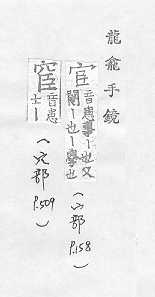 龍龕手鏡
宦
音患事丨也又
閹丨也丨學也
（宀部 P.158）
䆠
音患
士丨
（穴部 P.509）